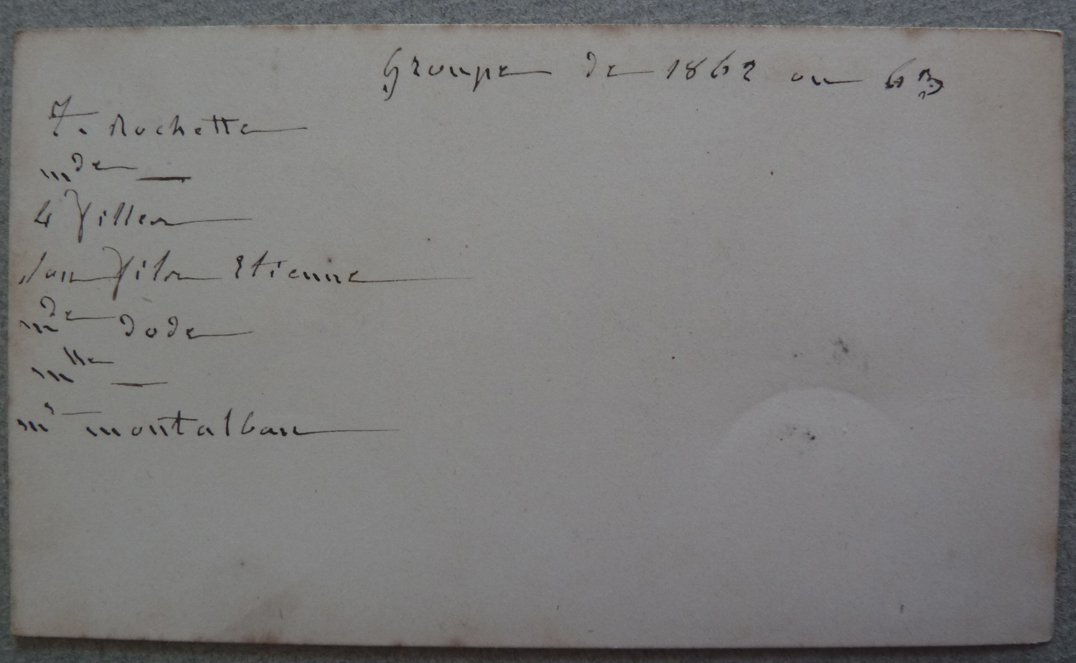 Groupe de 1862 ou 63
F. Rochette
Mde —
4 filles
Son fils Etienne
Mde Dode
Mlle —
Mr Montalban